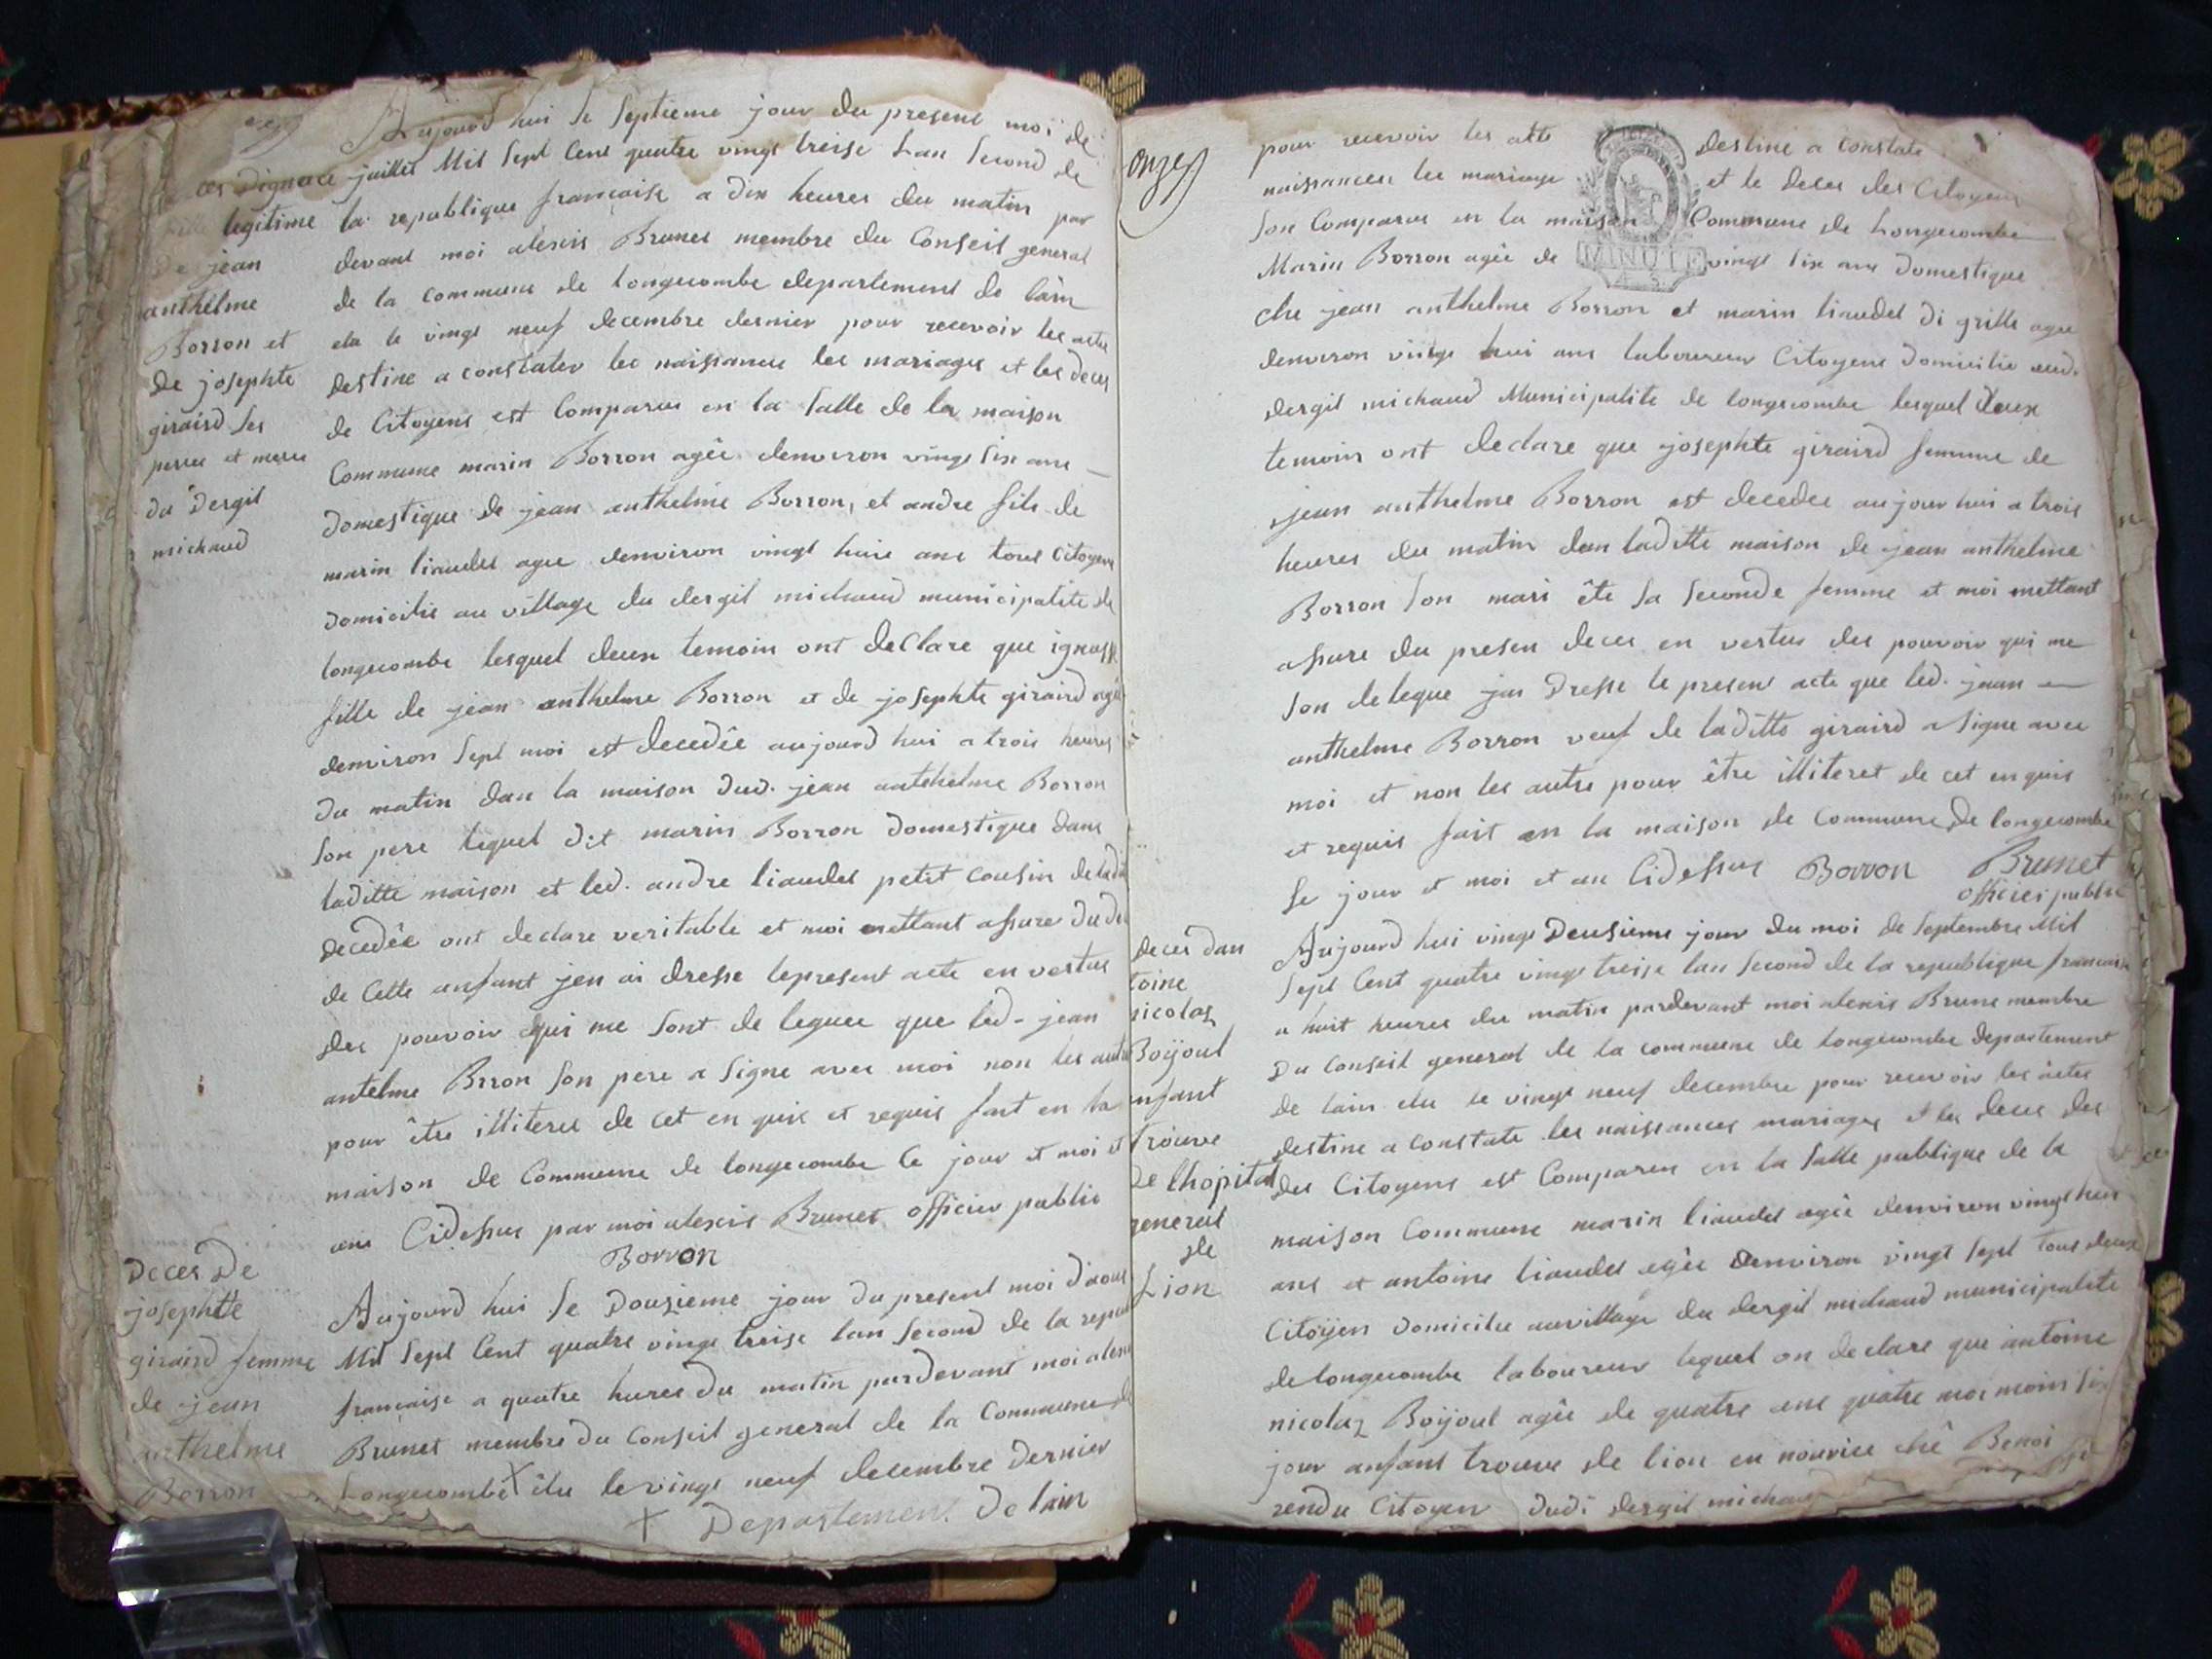 ces Dignace
legitime
De jean
anthelme
Borron et
de josephte
giraird ses
peree et meree
du Dergil
michaud
Aujourd hui le septieme jour du present moi de
juillet Mil sept Cent quatre vingt treise Lan second de
la republique francaise a dix heures du matin par
devant moi alexis Brunet membre du Conseil general
de la commune de longecombe departement de lain
elu le vingt neuf decembre dernier pour recevoir les actes
destine a constater les naissances les mariages et les deces
de Citoyens est Comparus en la salle de la maison
Commune marin Borron agée denviron vingt six ans
domestique de jean anthelme Borron, et andre fils de
marin liaudet agee denviron vingt huit ans tous Citoyens
domicilie au village du dergil michaud municipalite de
longecombe lesquel deux temoin ont deClare que ignasse
fille de jean anthelme Borron et de josephte giraird agée
denviron sept moi est decedée aujourd hui a trois heures
du matin dan la maison dud. jean antehelme Borron
son pere lequel dit marin Borron domestique dans
laditte maison et led. andre liaudet petit cousin de ladi
decedée ont declare veritable et moi mettant assure du de
de Cette anfant jen ai dresse lepresent acte en vertus
des pouvoir qui me sont de leguee que led- jean
antelme Brron son pere a signe avec moi non les autre
pour être illiteree de cet en quis et requis fait en la
maison de Commune de longecombe le jour et moi et
ans Cidessus par moi alexis Brunet officier public
Borron
Deces De
josephtte
giraird femme
de jean
anthelme
Borron
Aujourd hui le Dousieme jour du present moi daous
Mil sept Cent quatre vingt treise lan second de la repu
francaise a quatre hures du matin pardevant moi alexis
Brunet membre du Conseil general de la Commune de
Longecombe + élu le vingt neuf decembre dernier
+ Departement de lain
onze
pour recevoir les acte destine a constate
naissances les mariage et le deces des Citoyens
son Comparus en la maison Commune de Longecombe
MINUTE
Marin Borron agée de vingt six ans domestique
che jean anthelme Borron et marin liaudet di grille agee
denviron vingt hui ans laboureur Citoyens domicilie aud.
dergil michaud Municipalite de longecombe lesquel deux
temoin ont declare que josephte giraird femme de
jean anthelme Borron est decedee aujour hui a trois
heures du matin dan laditte maison de jean anthelme
Borron son mari éte sa seconde femme et moi mettant
assure du presen deces en vertus des pouvoir qui me
son delegue jai dresse le present acte que led. jean
anthelme Borron veuf de laditte giraird a signe avec
moi et non les autre pour être illiteret de cet enquis
et requis fait en la maison de Commune de longecombe
le jour et moi et an Cidessus Borron Brunet
officier public
deces dan
toine
nicolaz
Boijoul
enfant
trouve
de lhopital
general
de
Lion
Aujourd hui vingt Deusieme jour du moi de septembre Mil
sept Cent quatre vingt treise lan second de la republique francaise
a huit heures du matin pardevant moi alexis Brune membre
Du Conseil general de la commune de longecombe departement
de lain elu le vingt neuf decembre pour recevoir les actes
destine a constate les naissances mariages et les deces des
des Citoyens est Comparus en la salle publique de la
maison Commune marin liaudet agée denviron vingt huit
ans et antoine liaudet agée denviron vingt sept tous deux
Citoÿen domicilie auvillage du dergil michaud municipalite
de longecombe laboureur lequel on declare que antoine
nicolaz Boijoul agée de quatre ans quatre moi moin six
jour anfant trouve de lion en nourice ché Benoi
rendu Citoyen dudi dergil michaud